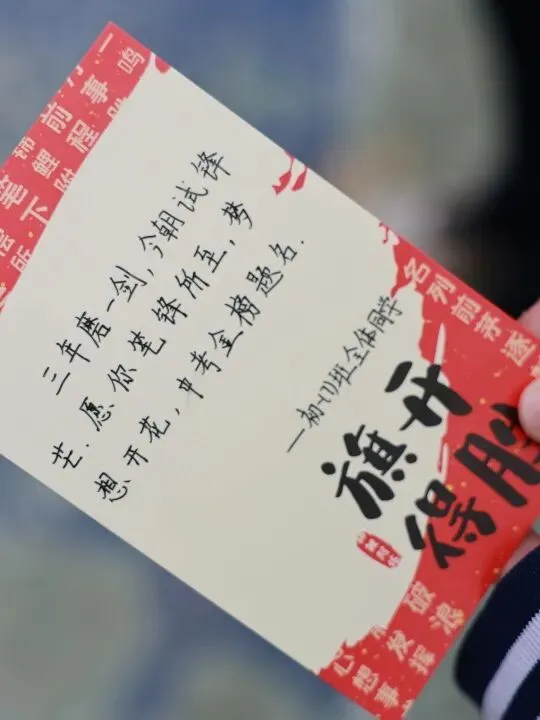 三年磨一剑，今朝试锋
芒．愿你笔锋所至，梦
想开花，中考金榜题名．
一初一(1)班全体同学
旗开
得胜
名列前茅 逐
破浪
发挥
心想事
一鸣
前事
鲤程
笔下